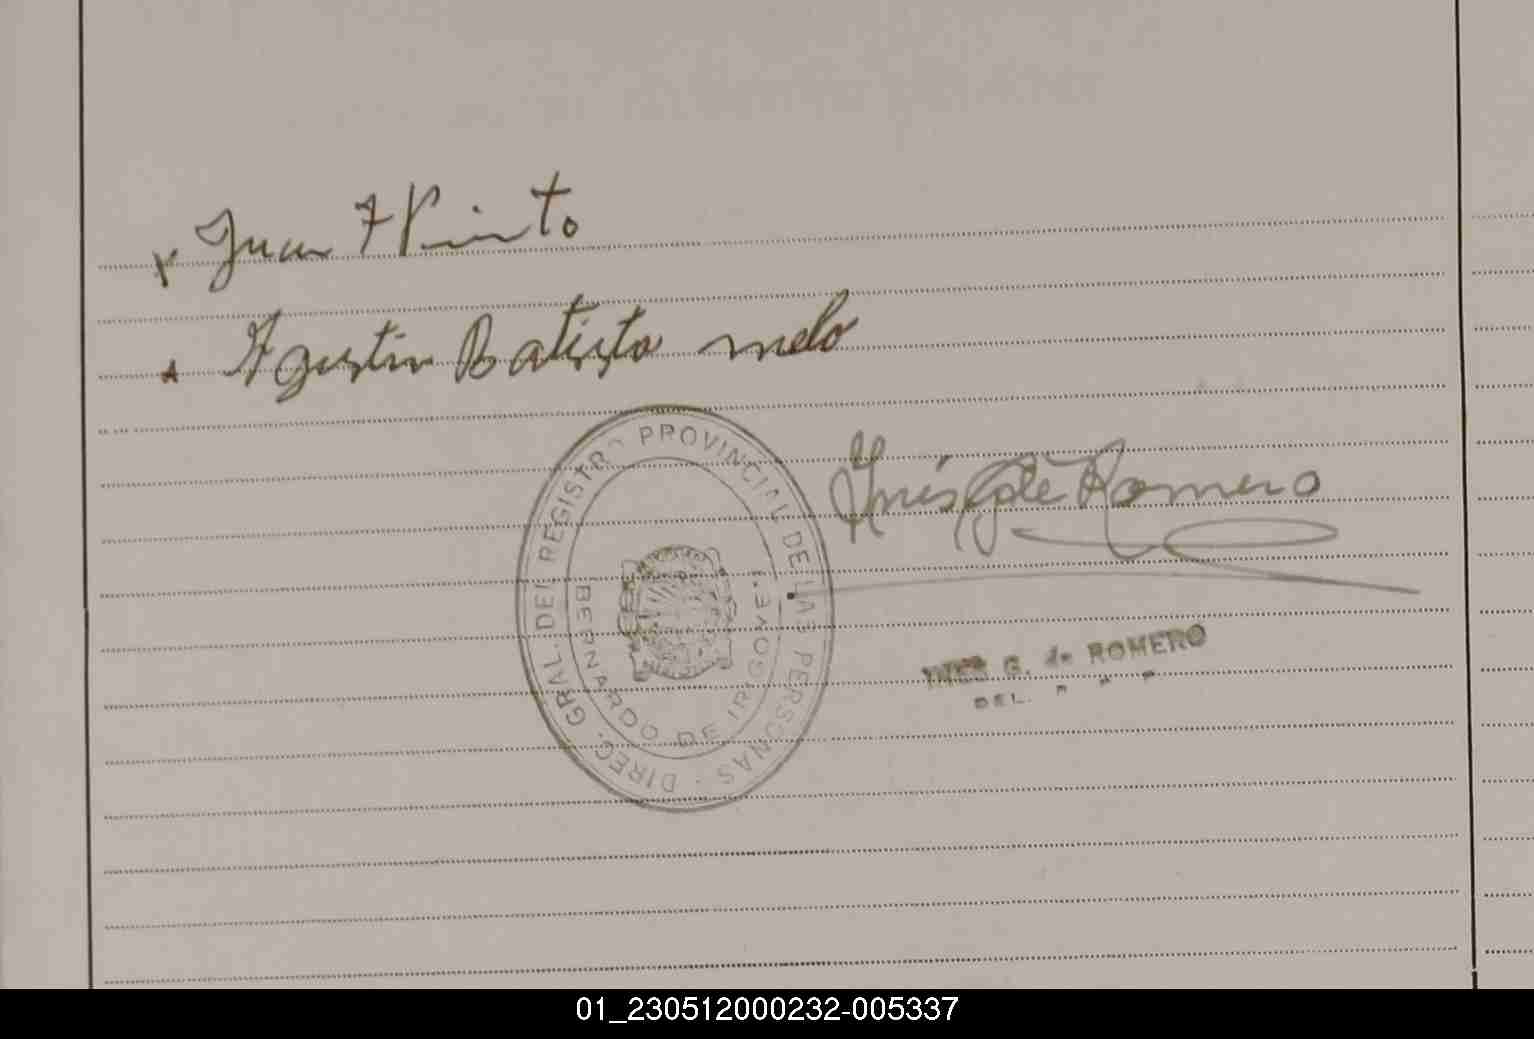 Juan F Pinto
Agustin Batista melo
DIREC. GRAL. DEL REGISTRO PROVINCIAL DE LAS PERSONAS
BERNARDO DE IRIGOYEN
Inés G de Romero
INES G. de ROMERO
DEL.
01_230512000232-005337